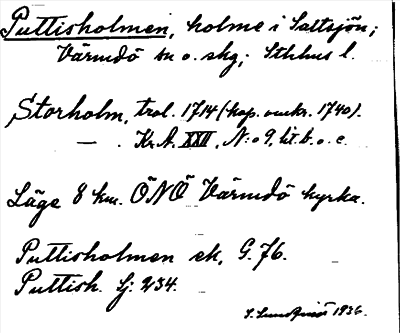 Puttisholmen, holme i Saltsjön;
Värmdö sn o. skg; Sthlms l.
Storholm, trol. 1714 (kop. omkr. 1740).
— . Kr. A. XXII, N:o 9, lit. b. o. c.
Läge 8 km. ÖNÖ Värmdö kyrka.
Puttisholmen ek. G. 76.
Puttish. Sj: 234.
S. Lundquist 1936.